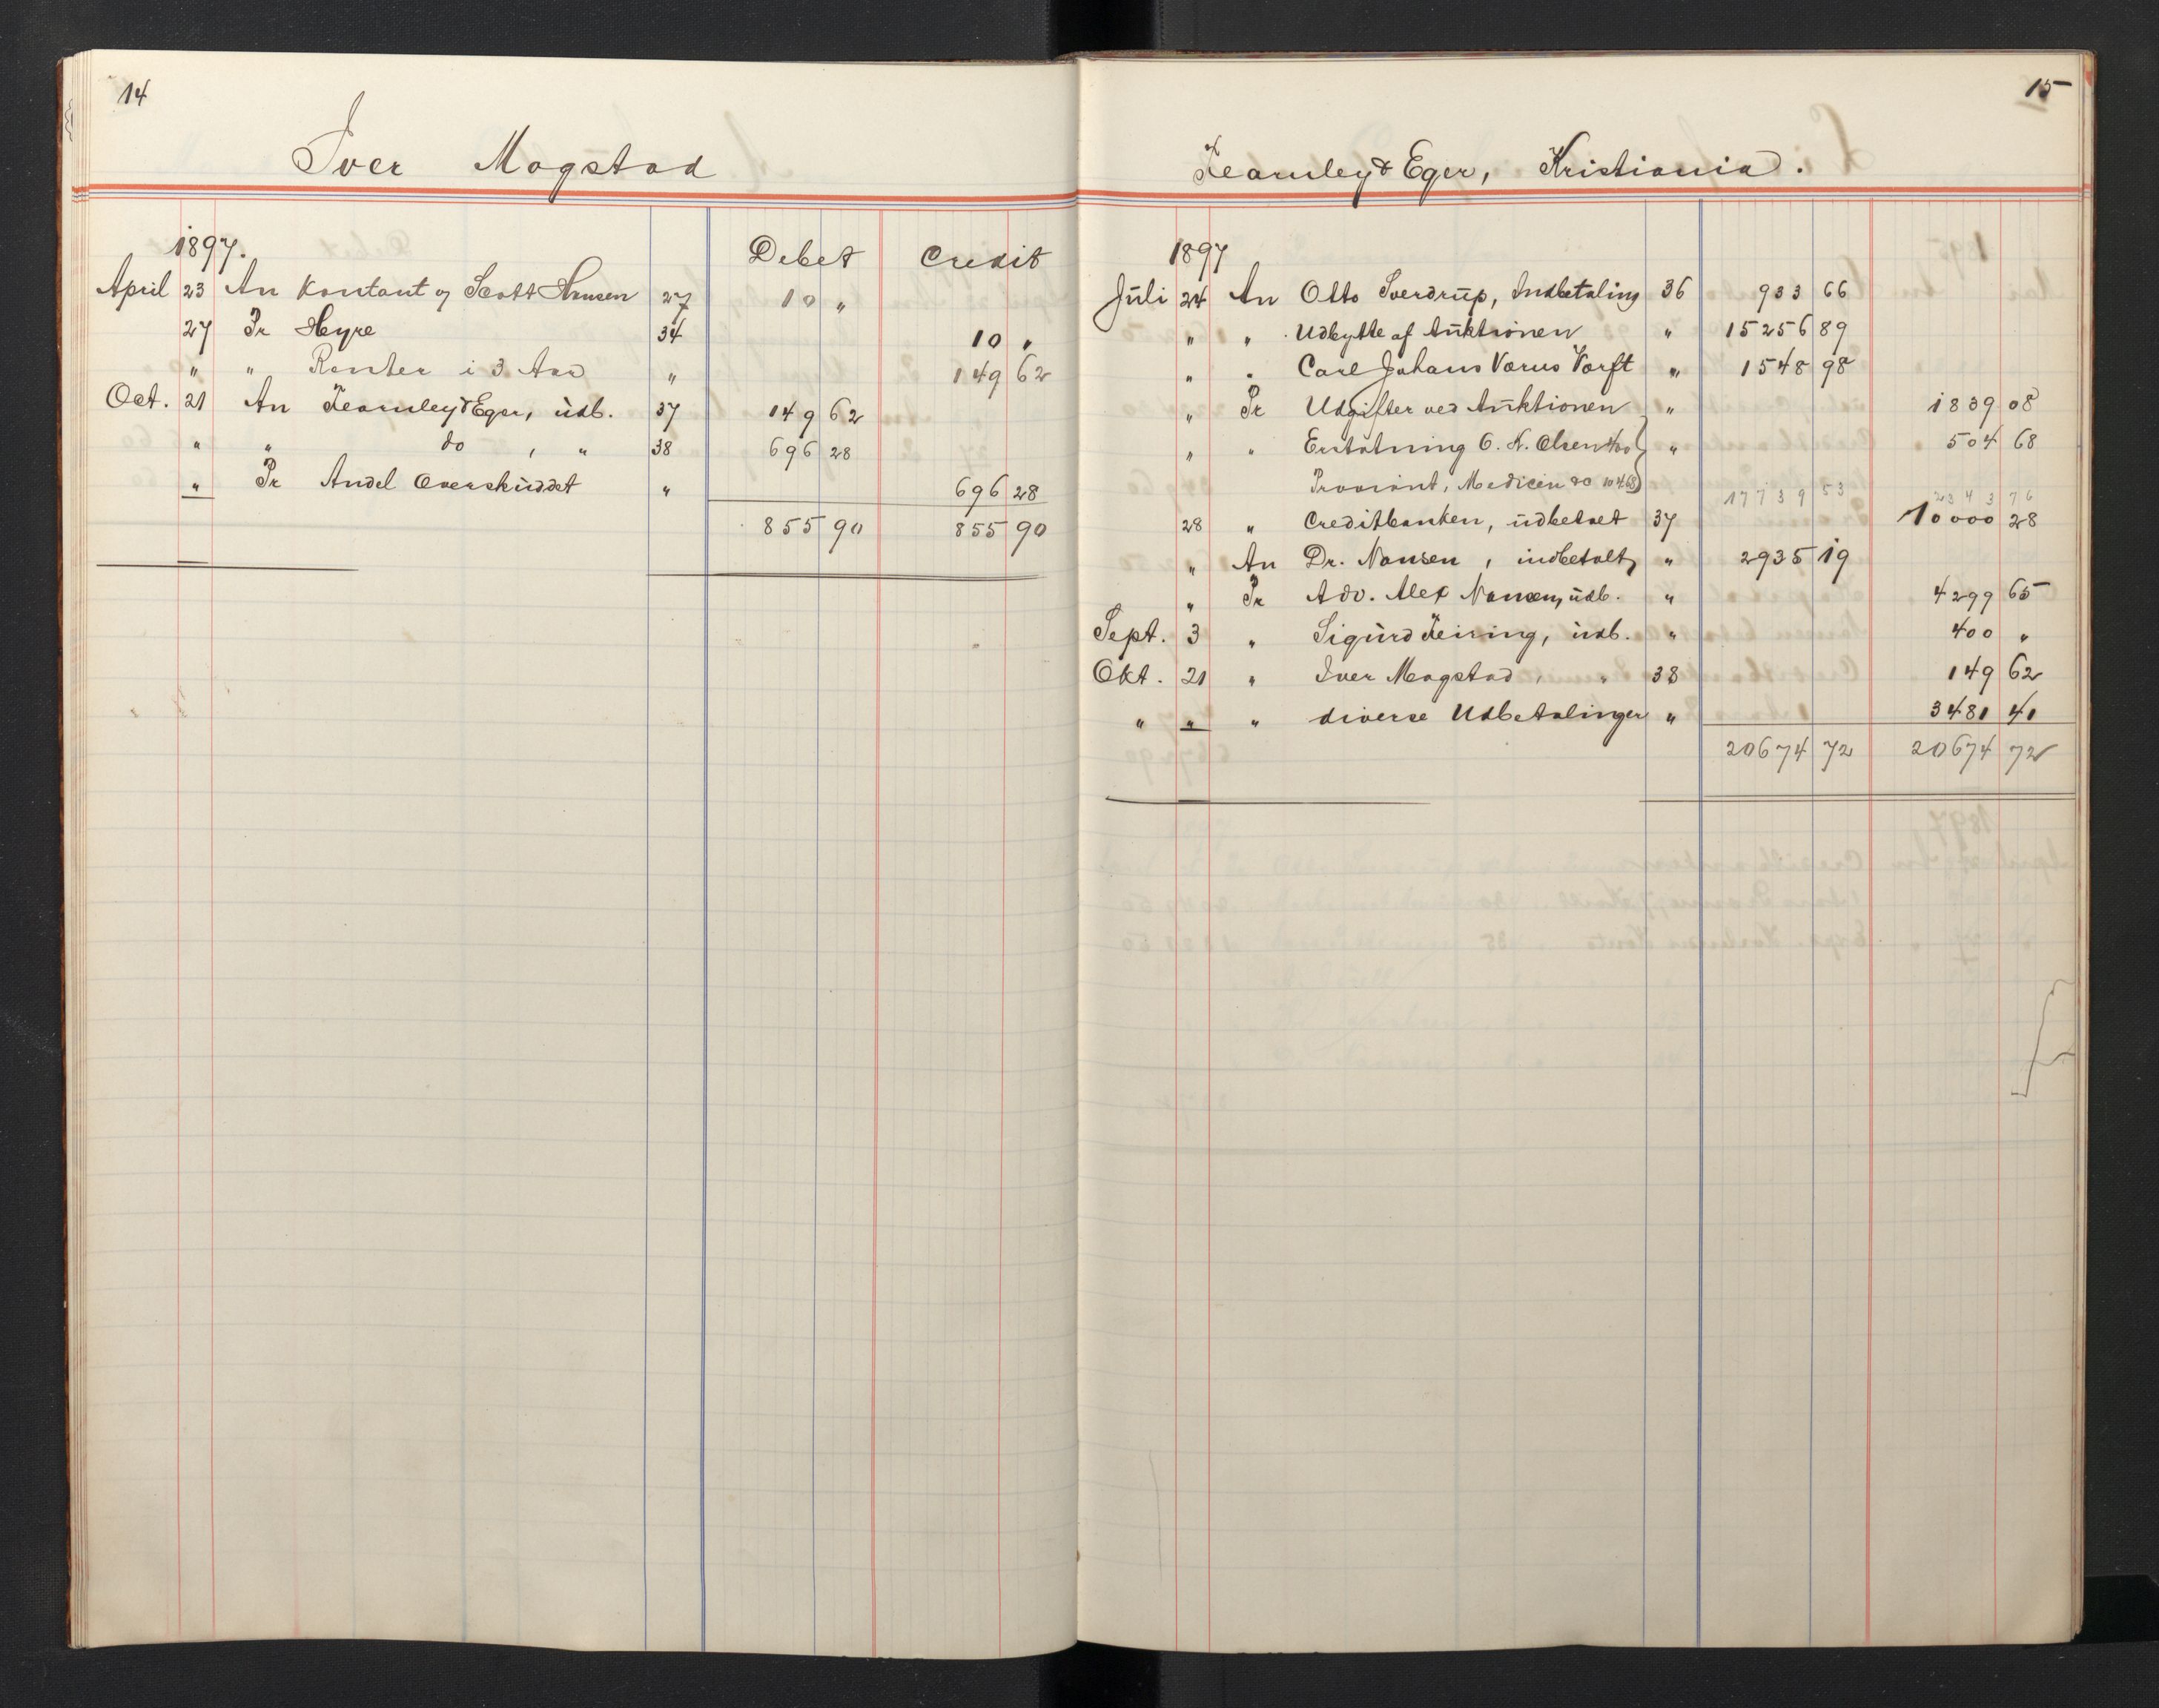 14
Iver Mogstad
1897. Debet Credit
April 23 An Kontant og Scott Hansen 27 10 "
27 Pr Hyre 34 10 "
" " Renter i 3 Aar " 149 62
Oct. 21 An Fearnley & Eger, üdb. 37 149 62
" " do , " 38 696 28
" Pr Andel Overskuddet " 696 28
855 90 855 90
15
Fearnley & Eger, Kristiania.
1897
Juli 24 An Otto Sverdrup, Indbetaling 36 933 66
" " Udbytte af Auktionen " 15256 89
" " Carl Johans Værns Værft " 1548 98
" Pr Udgifter ved Auktionen " 1839 08
" " Erstatning O. N. Olsen 400 " 504 68
Proviant, Medicin do 104.68
17739 53 2343 76
28 " Creditbanken, üdbetalt 37 10000 28
" An Dr. Nansen, indbetalt, " 2935 19
" Pr Adv. Alex Nansen, üdb. " 4299 65
Sept. 3 " Sigurd Feiring, üdb. " 400 "
Okt. 21 " Iver Mogstad, " 38 149 62
" " " diverse Udbetalinger " 3481 41
20674 72 20674 72